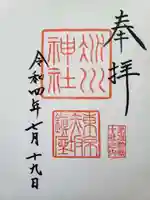 奉拝
氷川
神社
東京
赤坂
鎮座
令和四年七月十九日